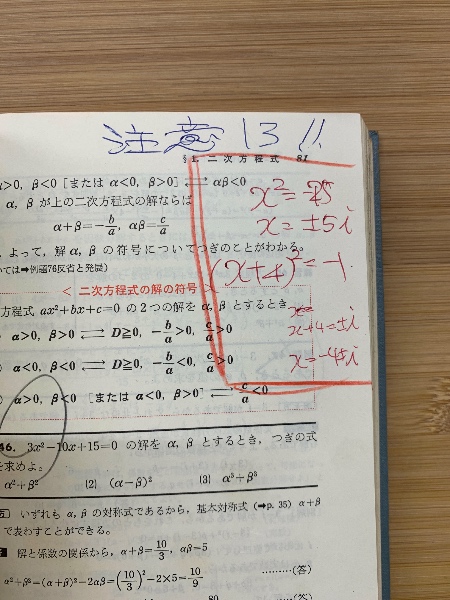 注意 13!!
§1. 二次方程式 81
α>0, β<0 [または α<0, β>0] ⇄ αβ<0
α, β が上の二次方程式の解ならば
α+β=-b/a, αβ=c/a
よって, 解 α, β の符号についてつぎのことがわかる。
ついては➡例題76反省と発展)
x²=-25
x=±5i
(x+4)²=-1
x+4=±i
x=-4±i
< 二次方程式の解の符号 >
方程式 ax²+bx+c=0 の2つの解を α, β とするとき
α>0, β>0 ⇄ D≧0, -b/a>0, c/a>0
α<0, β<0 ⇄ D≧0, -b/a<0, c/a>0
α>0, β<0 [または α<0, β>0] ⇄ c/a<0
46. 3x²-10x+15=0 の解を α, β とするとき, つぎの式
を求めよ。
α²+β² (2) (α-β)² (3) α³+β³
いずれも α, β の対称式であるから, 基本対称式 (➡p. 35) α+β
で表わすことができる。
解と係数の関係から, α+β=10/3, αβ=5
α²+β²=(α+β)²-2αβ=(10/3)²-2×5=10/9 ………(答)
80
(答)